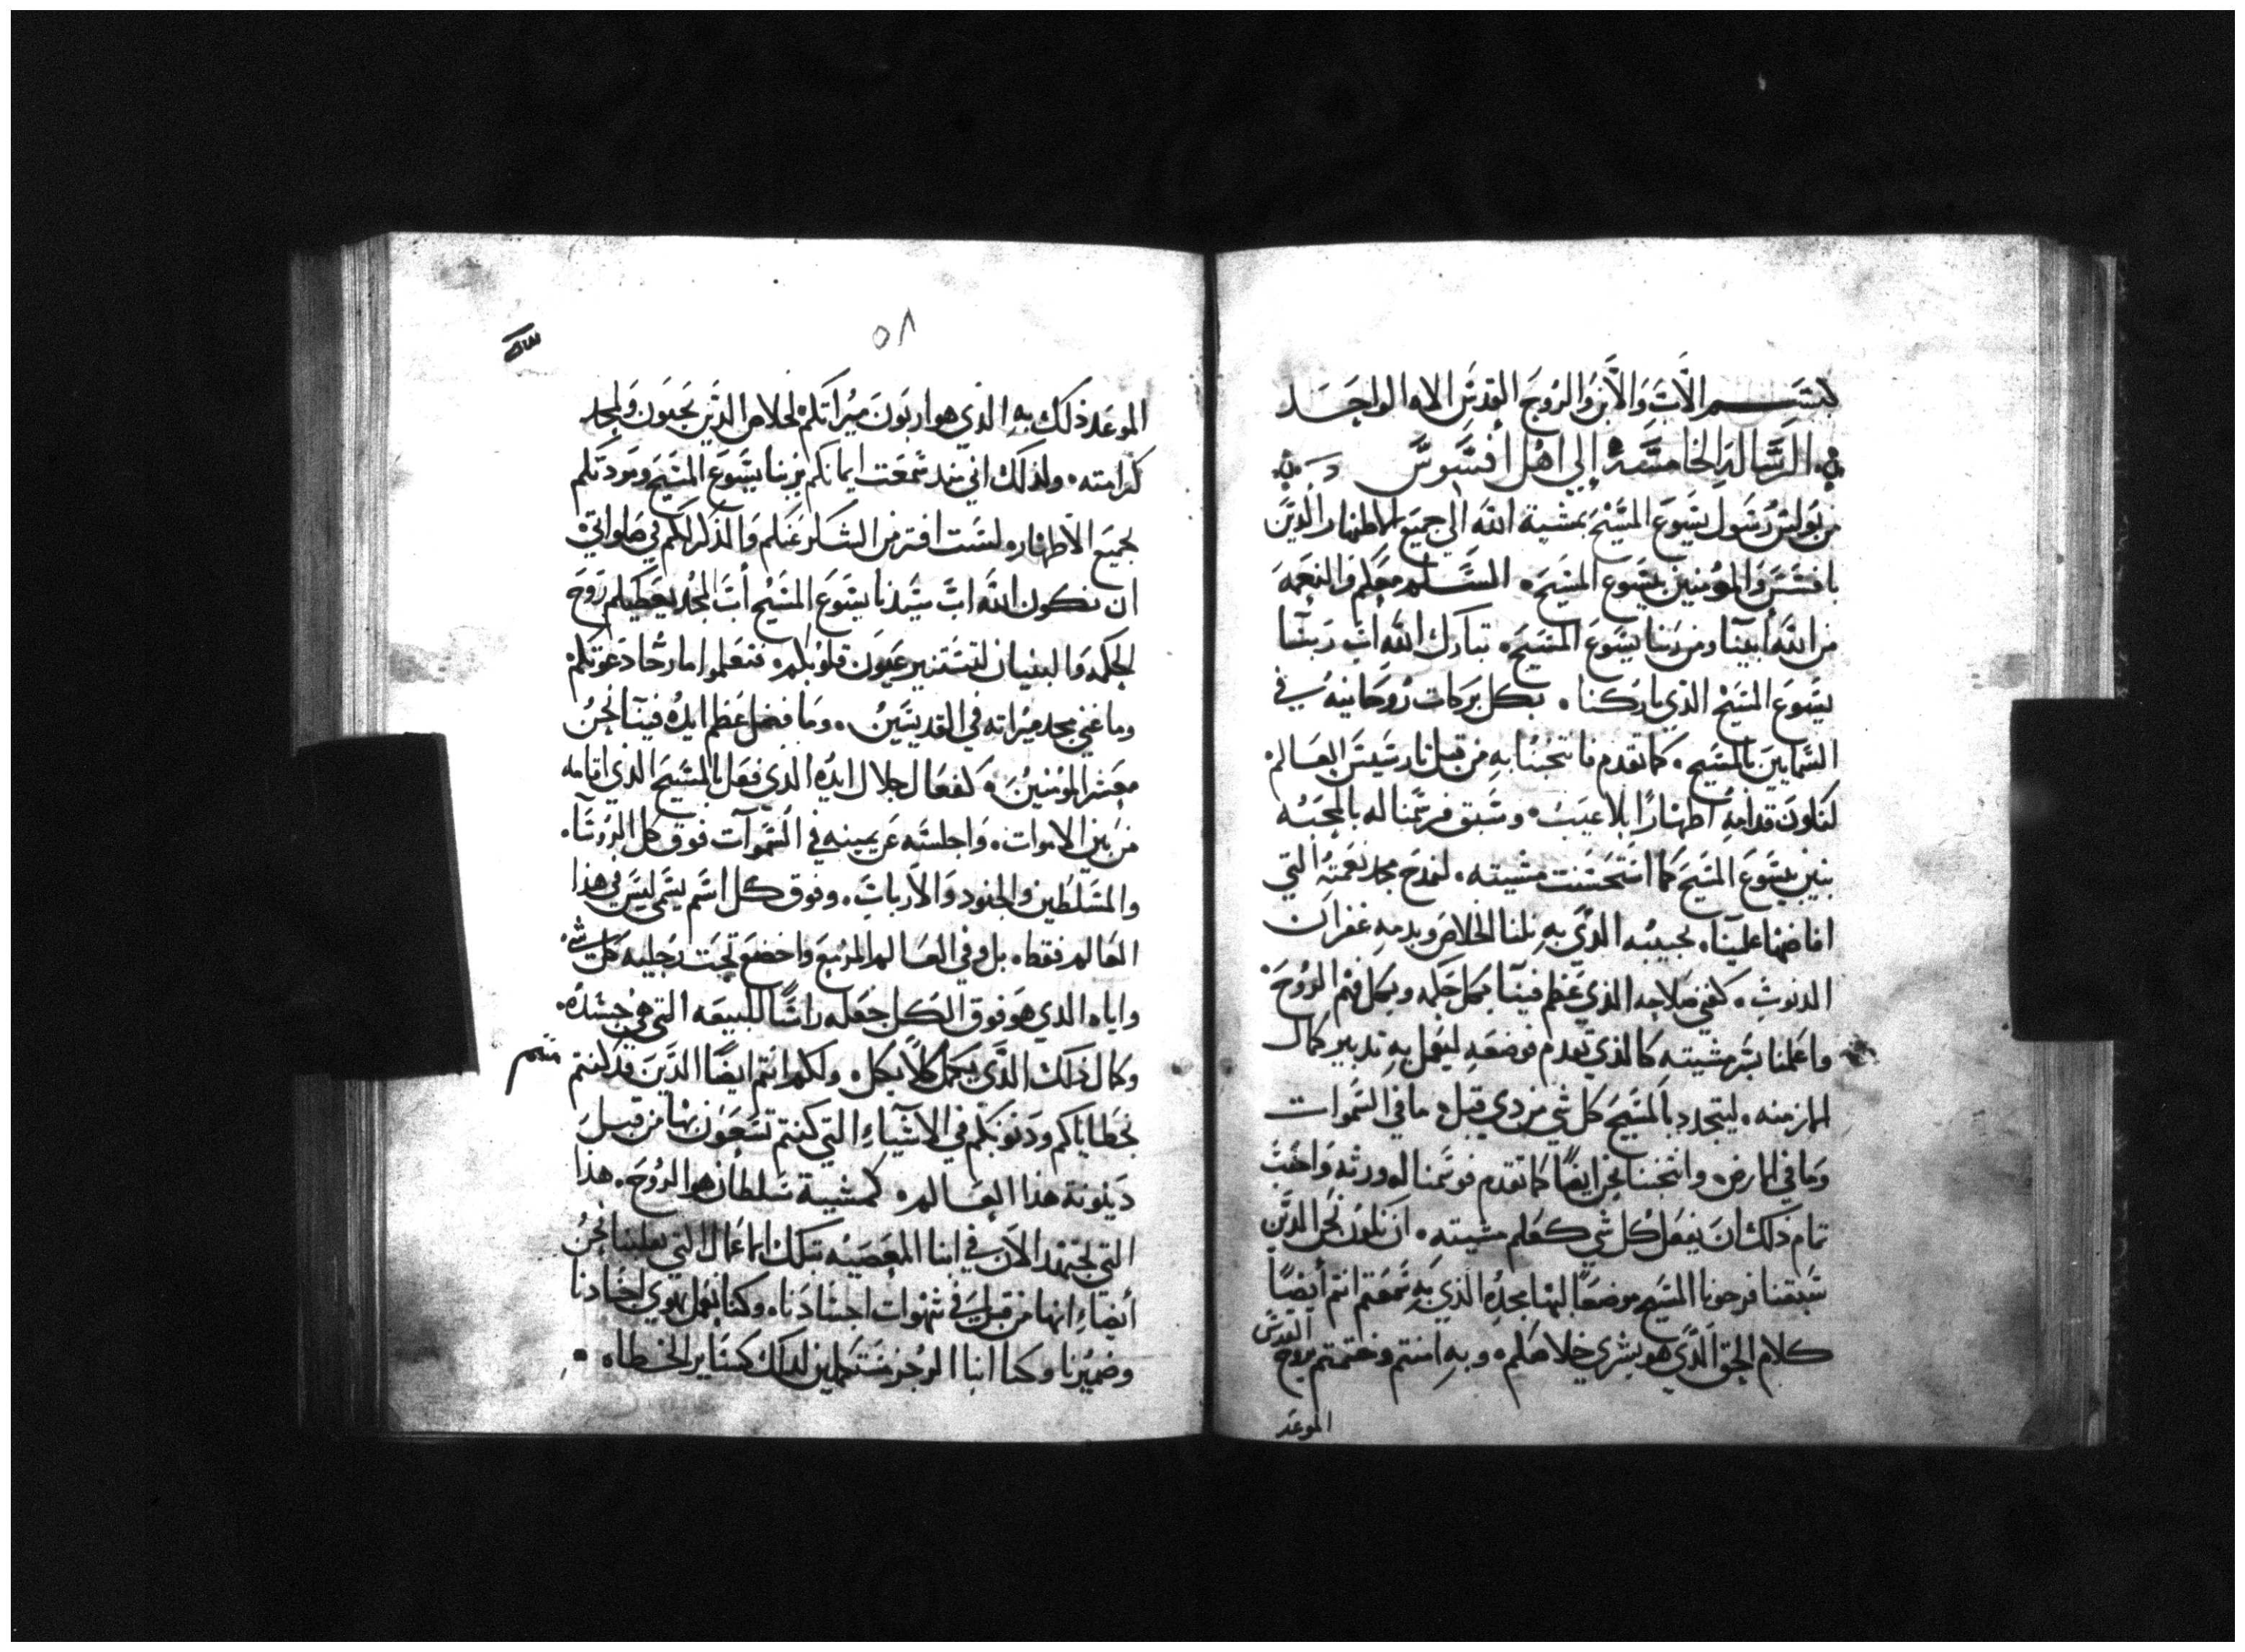 بسم الاب والابن والروح القدس الاه الواحد
الرساله الخامسه الى اهل افسوس
من بولس رسول يسوع المسيح بمشية الله الى جميع الاطهار الدين
بافسس والمومنين بيسوع المسيح. السلم معكم والنعمه
من الله ابينا ومن ربنا يسوع المسيح. تبارك الله اب ربنا
يسوع المسيح الذي باركنا. بكل بركات روحانيه في
السمايين بالمسيح. كما تقدم فانتجبنا به من قبل العالم.
لنكون قدامه اطهارا بلا عيب. وسبق فرسمنا له بالمحبه
بنين بيسوع المسيح كما استحسنت مشيته. لنمدح مجد نعمته التي
افاضها علينا. بحبيبه الدي به نلنا الخلاص وبدمه غفران
الدنوب. كغنى صلاحه الذي عظم فينا بكل حكمه وبكل فهم الروح.
واعلمنا سر مشيته كالذي تقدم فوضعه ليعمل به تدبير كمال
الازمنه. ليتجدد بالمسيح كل شي من دي قبل. ما في السموات
وما في الارض. وانتجبنا نحن ايضا كما تقدم فرسمنا له ورثه واحب
تمام ذلك ان يفعل كل شي كعلم مشيته. ان نكون نحن الدين
سبقنا فرجونا المسيح موضعا لبها مجده الذي به سمعتم انتم ايضا
كلام الحق الذي هو بشرى خلاصكم. وبه امنتم وختمتم بروح القدس
الموعد
٥٨
الموعد ذلك به الذي هو اربون ميراثكم لخلاص الذين يحيون ولمجد
كرامته. ولذلك اني منذ سمعت ايمانكم بربنا يسوع المسيح ومودتكم
لجميع الاطهار. لست افتر من الشكر عنكم والذكر لكم في صلواتي
ان يكون الله اب سيدنا يسوع المسيح اب المجد يعطيكم روح
الحكمه والبيان لتستنير عيون قلوبكم. فتعلموا ما رجا دعوتكم
وما غنى مجد ميراته في القديسين. وما فضل عظم ايده فينا نحن
معشر المومنين. كفعال جلال ايده الذي فعل بالمسيح الذي اقامه
من بين الاموات. واجلسه عن يمينه في السموات فوق كل الروسا.
والمسلطين والجنود والارباب. وفوق كل اسم يسمى ليس في هذا
العالم فقط. بل وفي العالم المزمع واخضع تحت رجليه كل شي.
واياه الدي هو فوق الكل جعله راسا للبيعه التي هي جسده.
وكمال ذلك الذي يكمل كلا بكل. ولكم انتم ايضا الذين قد كنتم متم
بخطاياكم ودنوبكم في الاشياء التي كنتم تسعون بها من قبل
دينونة هذا العالم. كمشية سلطان هوا الروح. هذا
التي تجتهد الان في ابنا المعصيه بتلك الاعمال التي نحن
ايضا انها من قبل في شهوات اجسادنا. وكنا نعمل بهوى اجسادنا
وضميرنا وكنا ابنا الرجز مستكملين لذلك كساير الخطاه.